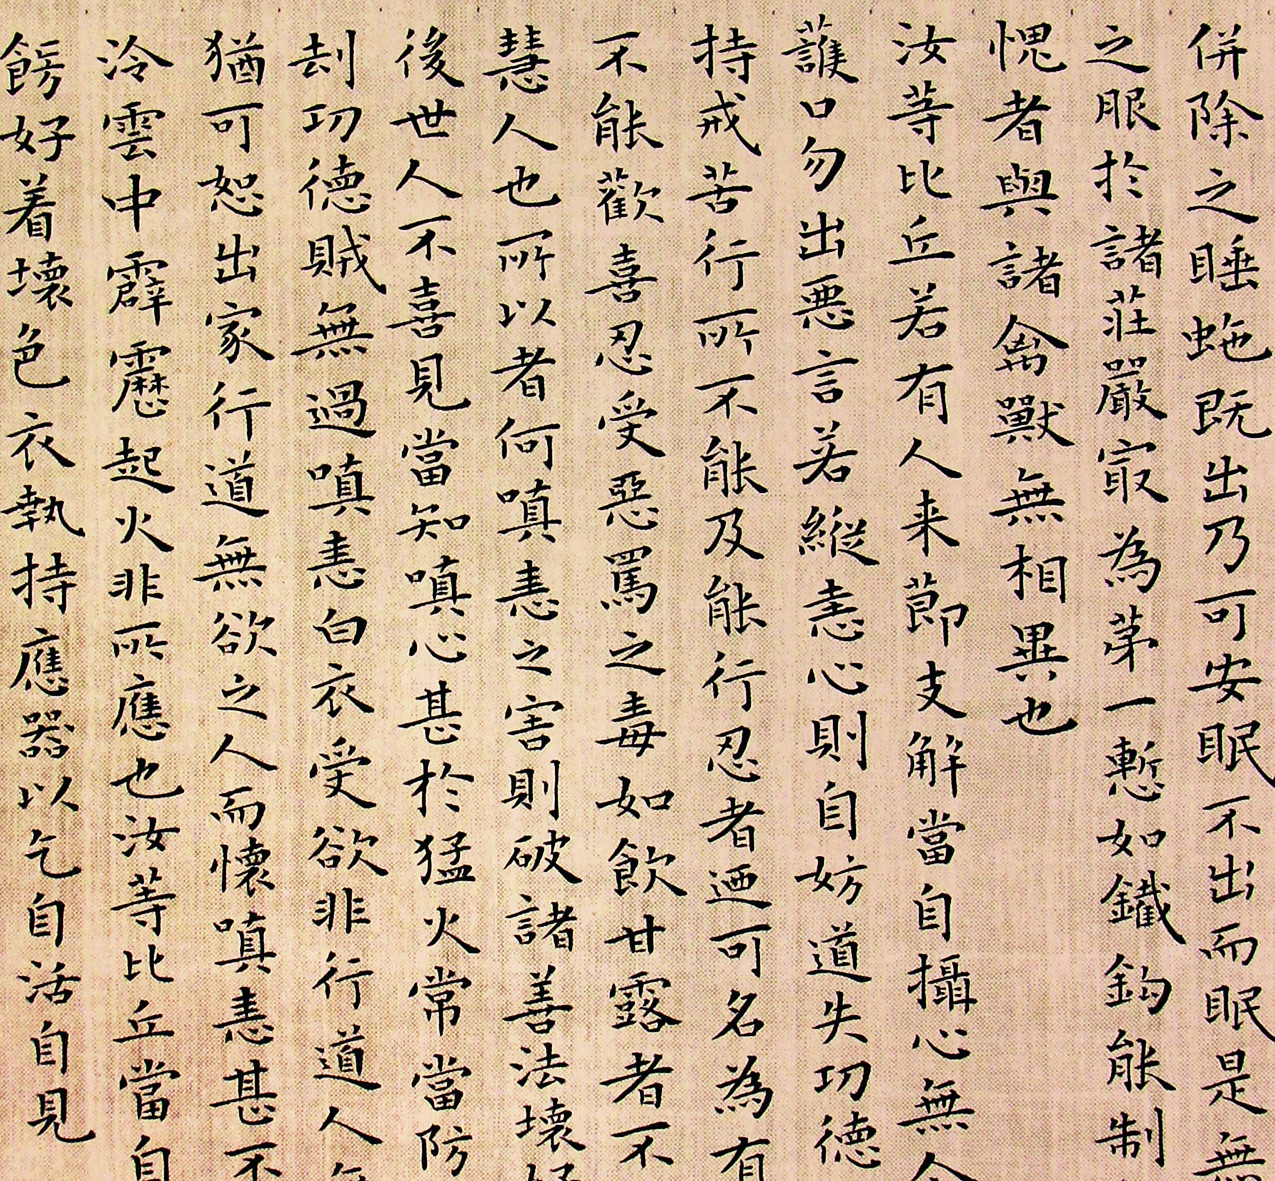 併除之睡虵既出乃可安眠不出而眠是無
之服於諸莊嚴㝡為苐一慙如鐵鈎能制
愧者與諸禽獸無相異也
汝等比丘若有人来莭支解當自攝心無令
護口勿出悪言若縱恚心則自妨道失功德
持戒苦行所不能及能行忍者迺可名為有
不能歡喜忍受惡罵之毒如飲甘露者不
慧人也所以者何嗔恚之害則破諸善法壞好
後世人不喜見當知嗔心甚於猛火常當防
刦功德賊無過嗔恚白衣受欲非行道人無
猶可恕出家行道無欲之人而懷嗔恚甚不
泠雲中霹靂起火非所應也汝等比丘當自
餝好着壞色衣執持應器以乞自活自見